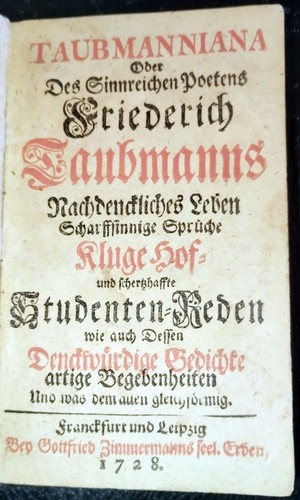 TAUBMANNIANA
Oder
Des Sinnreichen Poetens
Friederich
Taubmanns
Nachdenckliches Leben
Scharffsinnige Sprüche
Kluge Hof-
und schertzhaffte
Studenten-Reden
wie auch Dessen
Denckwürdige Gedichte
artige Begebenheiten
Und was dem allen gleichförmig.
Franckfurt und Leipzig
Bey Gottfried Zimmermanns seel. Erben,
1728.